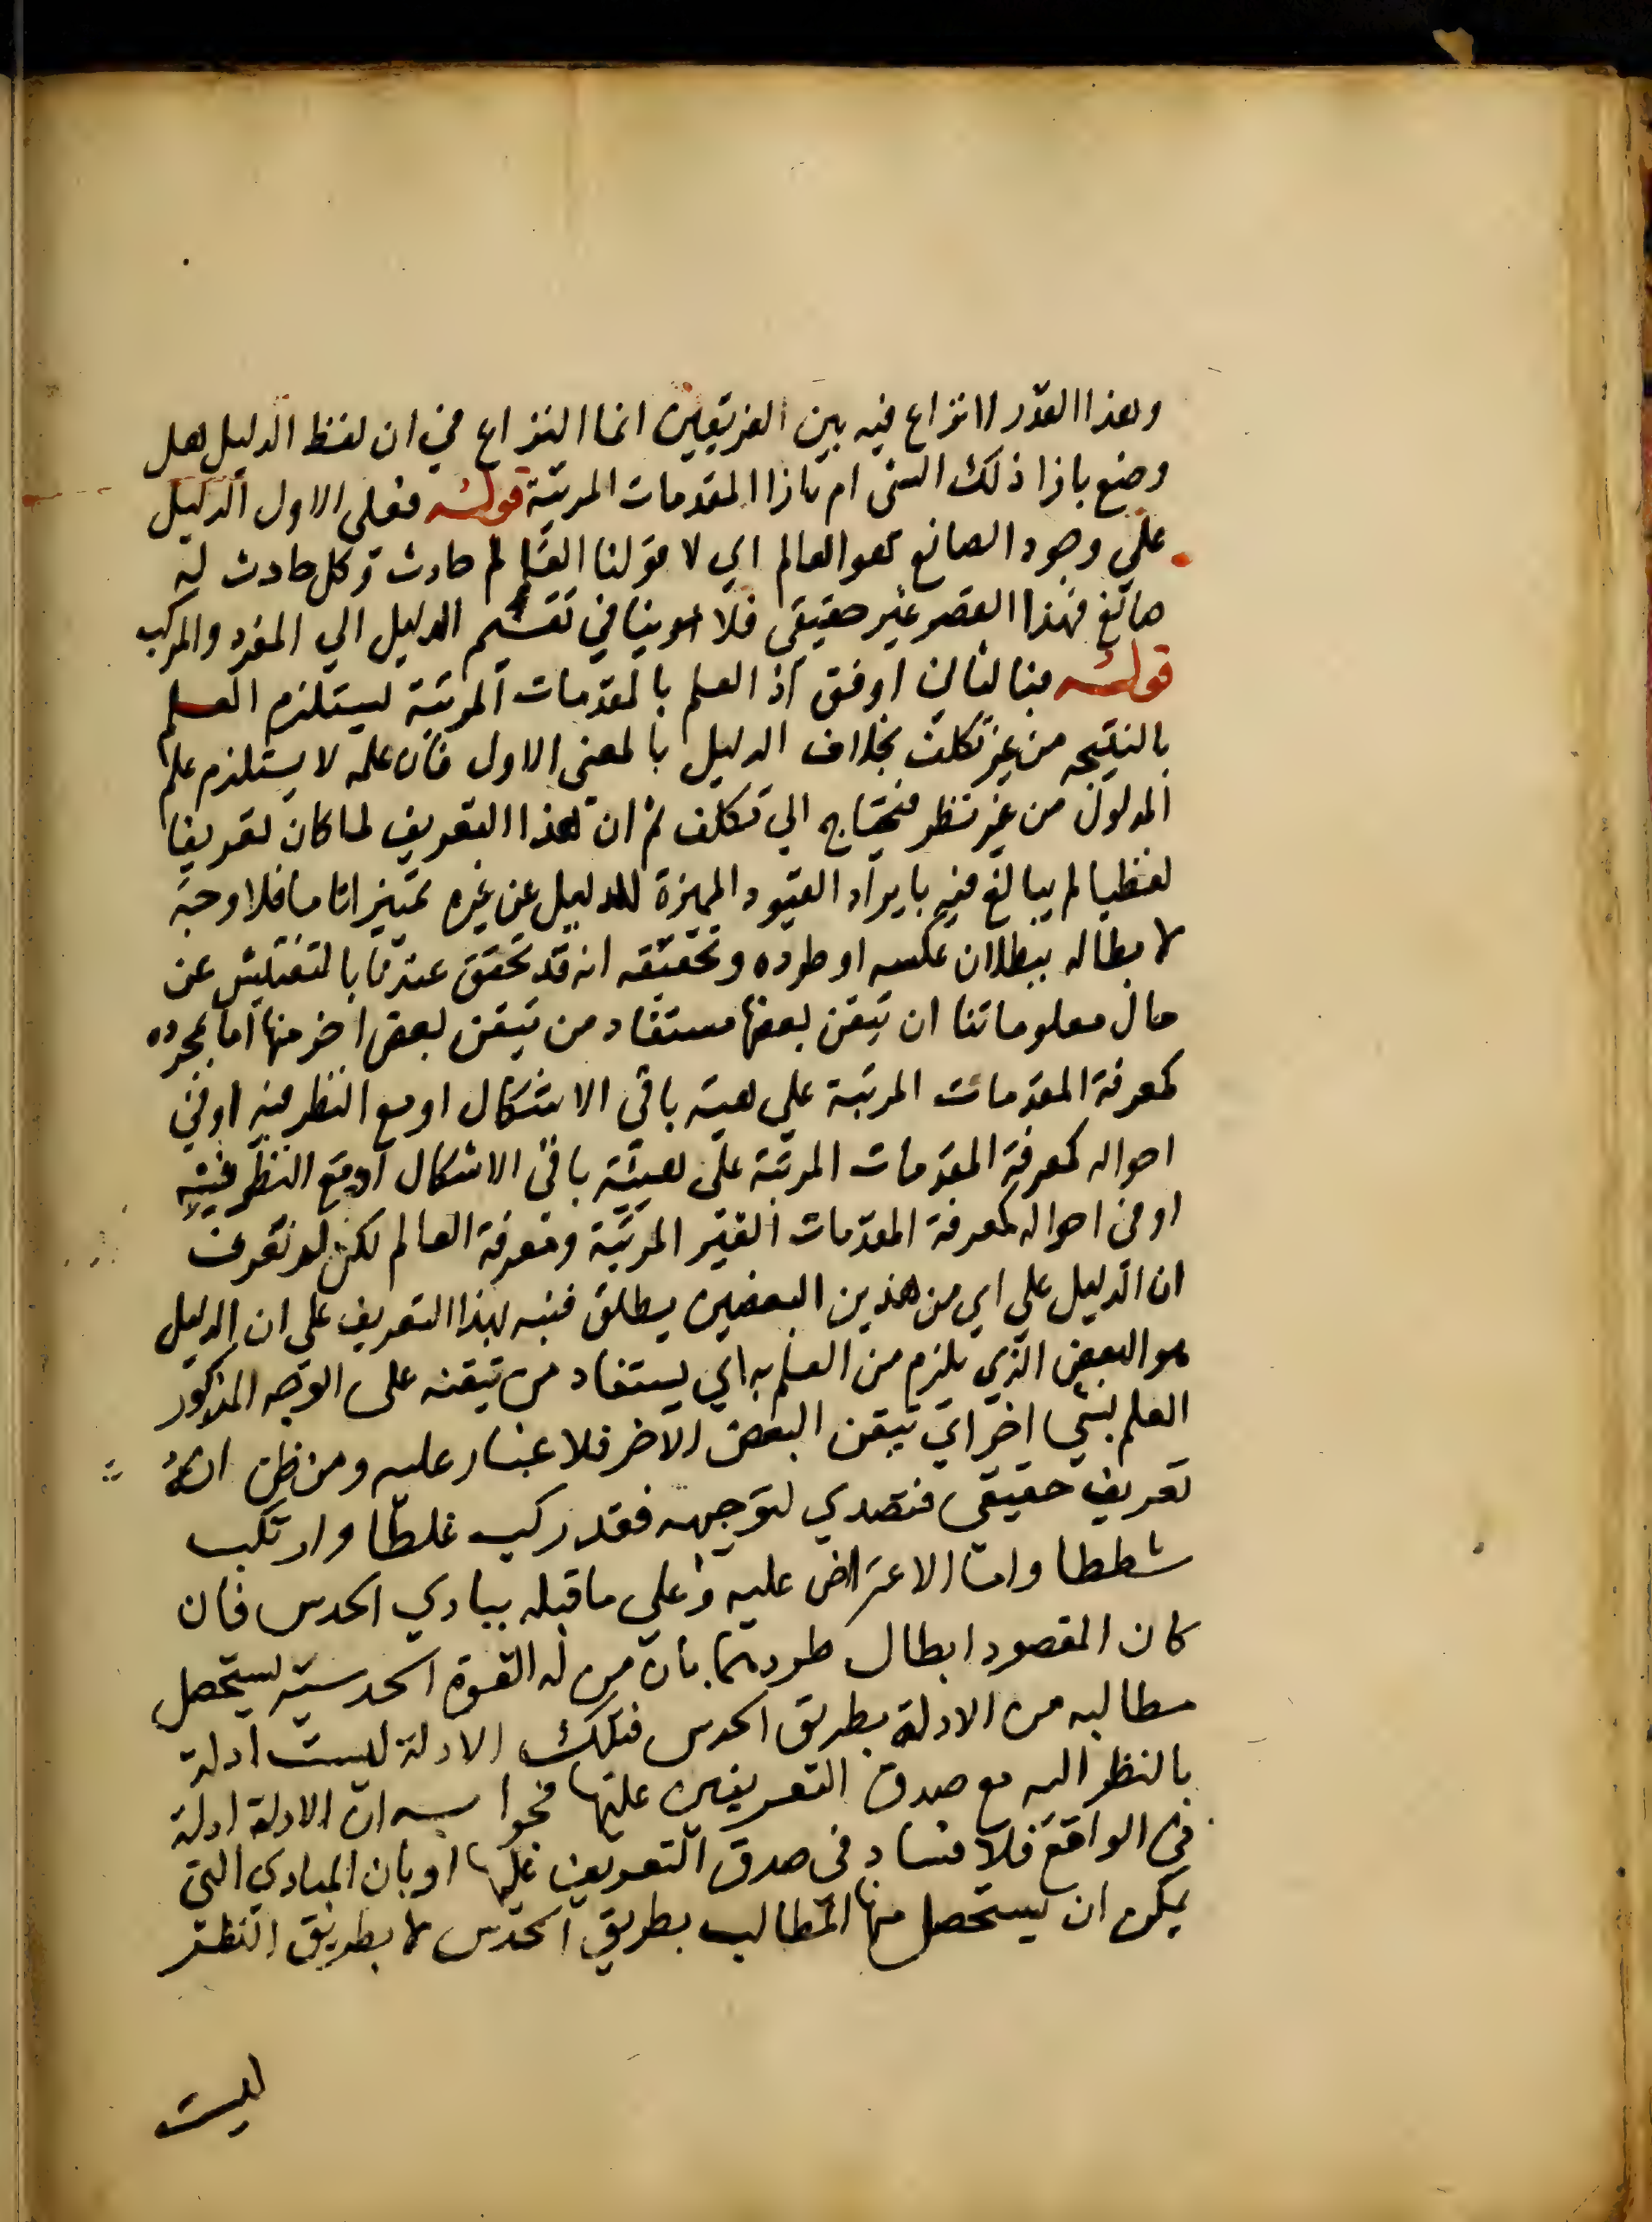 وهذا القدر لا نزاع فيه بين الفريقين انما النزاع في ان لفظ الدليل هل
وضع بازا ذلك الشى ام بازا المقدمات المرتبة قوله فعلى الاول الدليل
على وجود الصانع هو العالم اي لا قولنا العالم حادث وكل حادث له
صانع فهذا القصر غير حقيقى فلا ينافي تقسيم الدليل الي المفرد والمركب
قوله فبالثاني اوفق اذ العلم بالمقدمات المرتبة يستلزم العلم
بالنتيجه من غير تكلف بخلاف الدليل بالمعنى الاول فان علمه لا يستلزم علم
المدلول من غير نظر فيحتاج الي تكلف ثم ان هذا التعريف لما كان تعريفا
لفظيا لم يبالغ فيه بايراد القيود المميزة للدليل عن غيره تمييزا تاما فلا وجه
لابطاله ببطلان عكسه او طرده وتحقيقه انه قد تحقق عندنا بالتفتيش عن
حال معلوماتنا ان تيقن بعضها مستفاد من تيقن بعض اخر منها اما بمجرده
كمعرفة المقدمات المرتبة على هيئة باقى الاشكال او مع النظر فيه او في
احواله كمعرفة المقدمات المرتبة على هيئة باقى الاشكال او مع النظر فيه
او في احواله كمعرفة المقدمات الغير المرتبة ومعرفة العالم لكن لم نعرف
ان الدليل على اي من هذين البعضين يطلق فنبه بهذا التعريف على ان الدليل
هو البعض الذي يلزم من العلم به اي يستفاد من تيقنه على الوجه المذكور
العلم بشي اخر اي تيقن البعض الاخر فلا غبار عليه ومن ظن انه
تعريف حقيقى فتصدي لتوجيهه فقد ركب غلطا وارتكب
شططا واما الاعتراض عليه وعلي ما قبله بمبادي الحدس فان
كان المقصود ابطال طردهما بان من له القوة الحدسية يستحصل
مطالبه من الادلة بطريق الحدس فتلك الادلة ليست ادلة
بالنظر اليه مع صدق التعريفين عليها فجوابه ان الادلة ادلة
في الواقع فلا فساد في صدق التعريف عليها او بان المبادي التى
يمكن ان يستحصل منها المطالب بطريق الحدس لا بطريق النظر
ليست